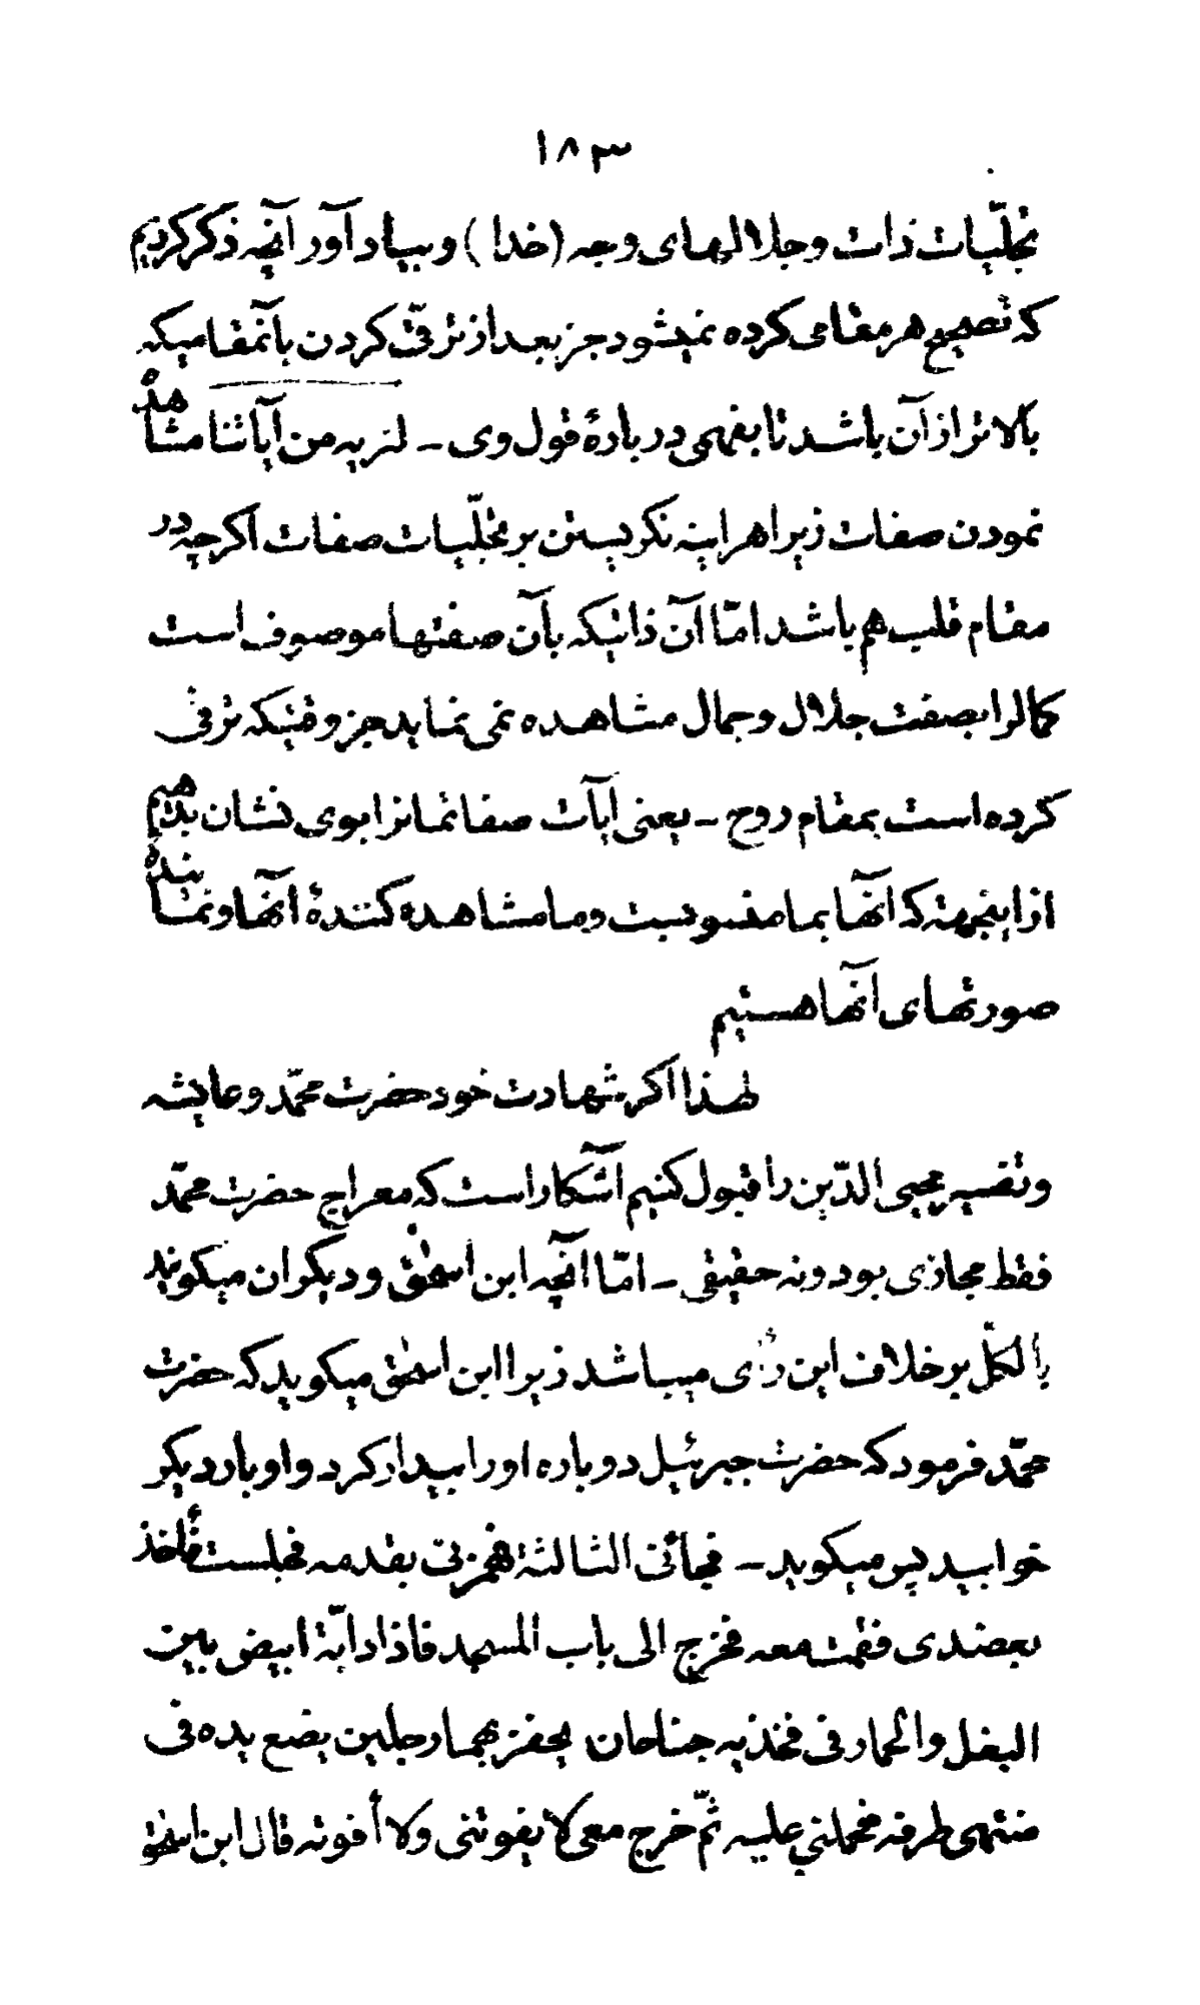 ۱۸۳
تجلّیات ذات و جلالهای وجه (خدا) و بیاد آور آنچه ذکر کردیم
که تصحیح هر مقامی کرده نمیشود جز بعد از ترقّی کردن بآنمقامیکه
بالاتر از آن باشد تا بفهمی درباره‌ٔ قول وی – لنریه من آیاتنا مشاهده
نمودن صفات زیرا هر اینه نکریستن بر تجلّیات صفات اکرچه در
مقام قلب هم باشد امّا آن ذاتیکه بآن صفتها موصوف است
کمالرا بصفت جلال و جمال مشاهده نمی نماید جز وقتیکه ترقی
کرده است بمقام روح – یعنی آیات صفاتمانرا بوی نشان بدهیم
از اینجهته که آنها بما منسوبست و ما مشاهده کنندهٔ آنها و نمایندهٔ
صورتهای آنها هستیم
لهذا اکر شهادت خود حضرت محمّد و عایشه
و تفسیر محیی الدّین را قبول کنیم آشکار است که معراج حضرت محمّد
فقط مجازی بود و نه حقیقی – امّا آنچه ابن اسحٰق و دیکران میکویند
بالکلّ بر خلاف این رأی میباشد زیرا ابن اسحٰق میکوید که حضرت
محمّد فرمود که حضرت جبرئیل دوباره او را بیدار کرد و او بار دیکر
خوابید پس میکوید – فجائنی الثالثة فهمزنی بقدمه فجلست فأخذ
بعضدی فقمت معه فخرج الی باب المسجد فاذا دابّة ابیض بین
البغل والحمار فی فخذیه جناحان یحفز بهما رجلین یضع یده فی
منتهی طرفه فحملنی علیه ثمّ خرج معی لا یفوتنی ولا أفوته قال ابن اسحٰق